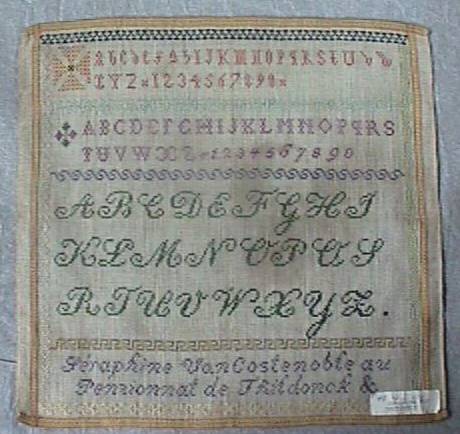 ABCDEFGHIJKMNOPQRSTUVW
XYZ 1234567890
ABCDEFGHIJKLMNOPQRS
TUVWXZ 1234567890
ABCDEFGHI
KLMNOPQS
RTUVWXYZ.
Séraphine VanCostenoble au
Pensionnat de Thildonck &